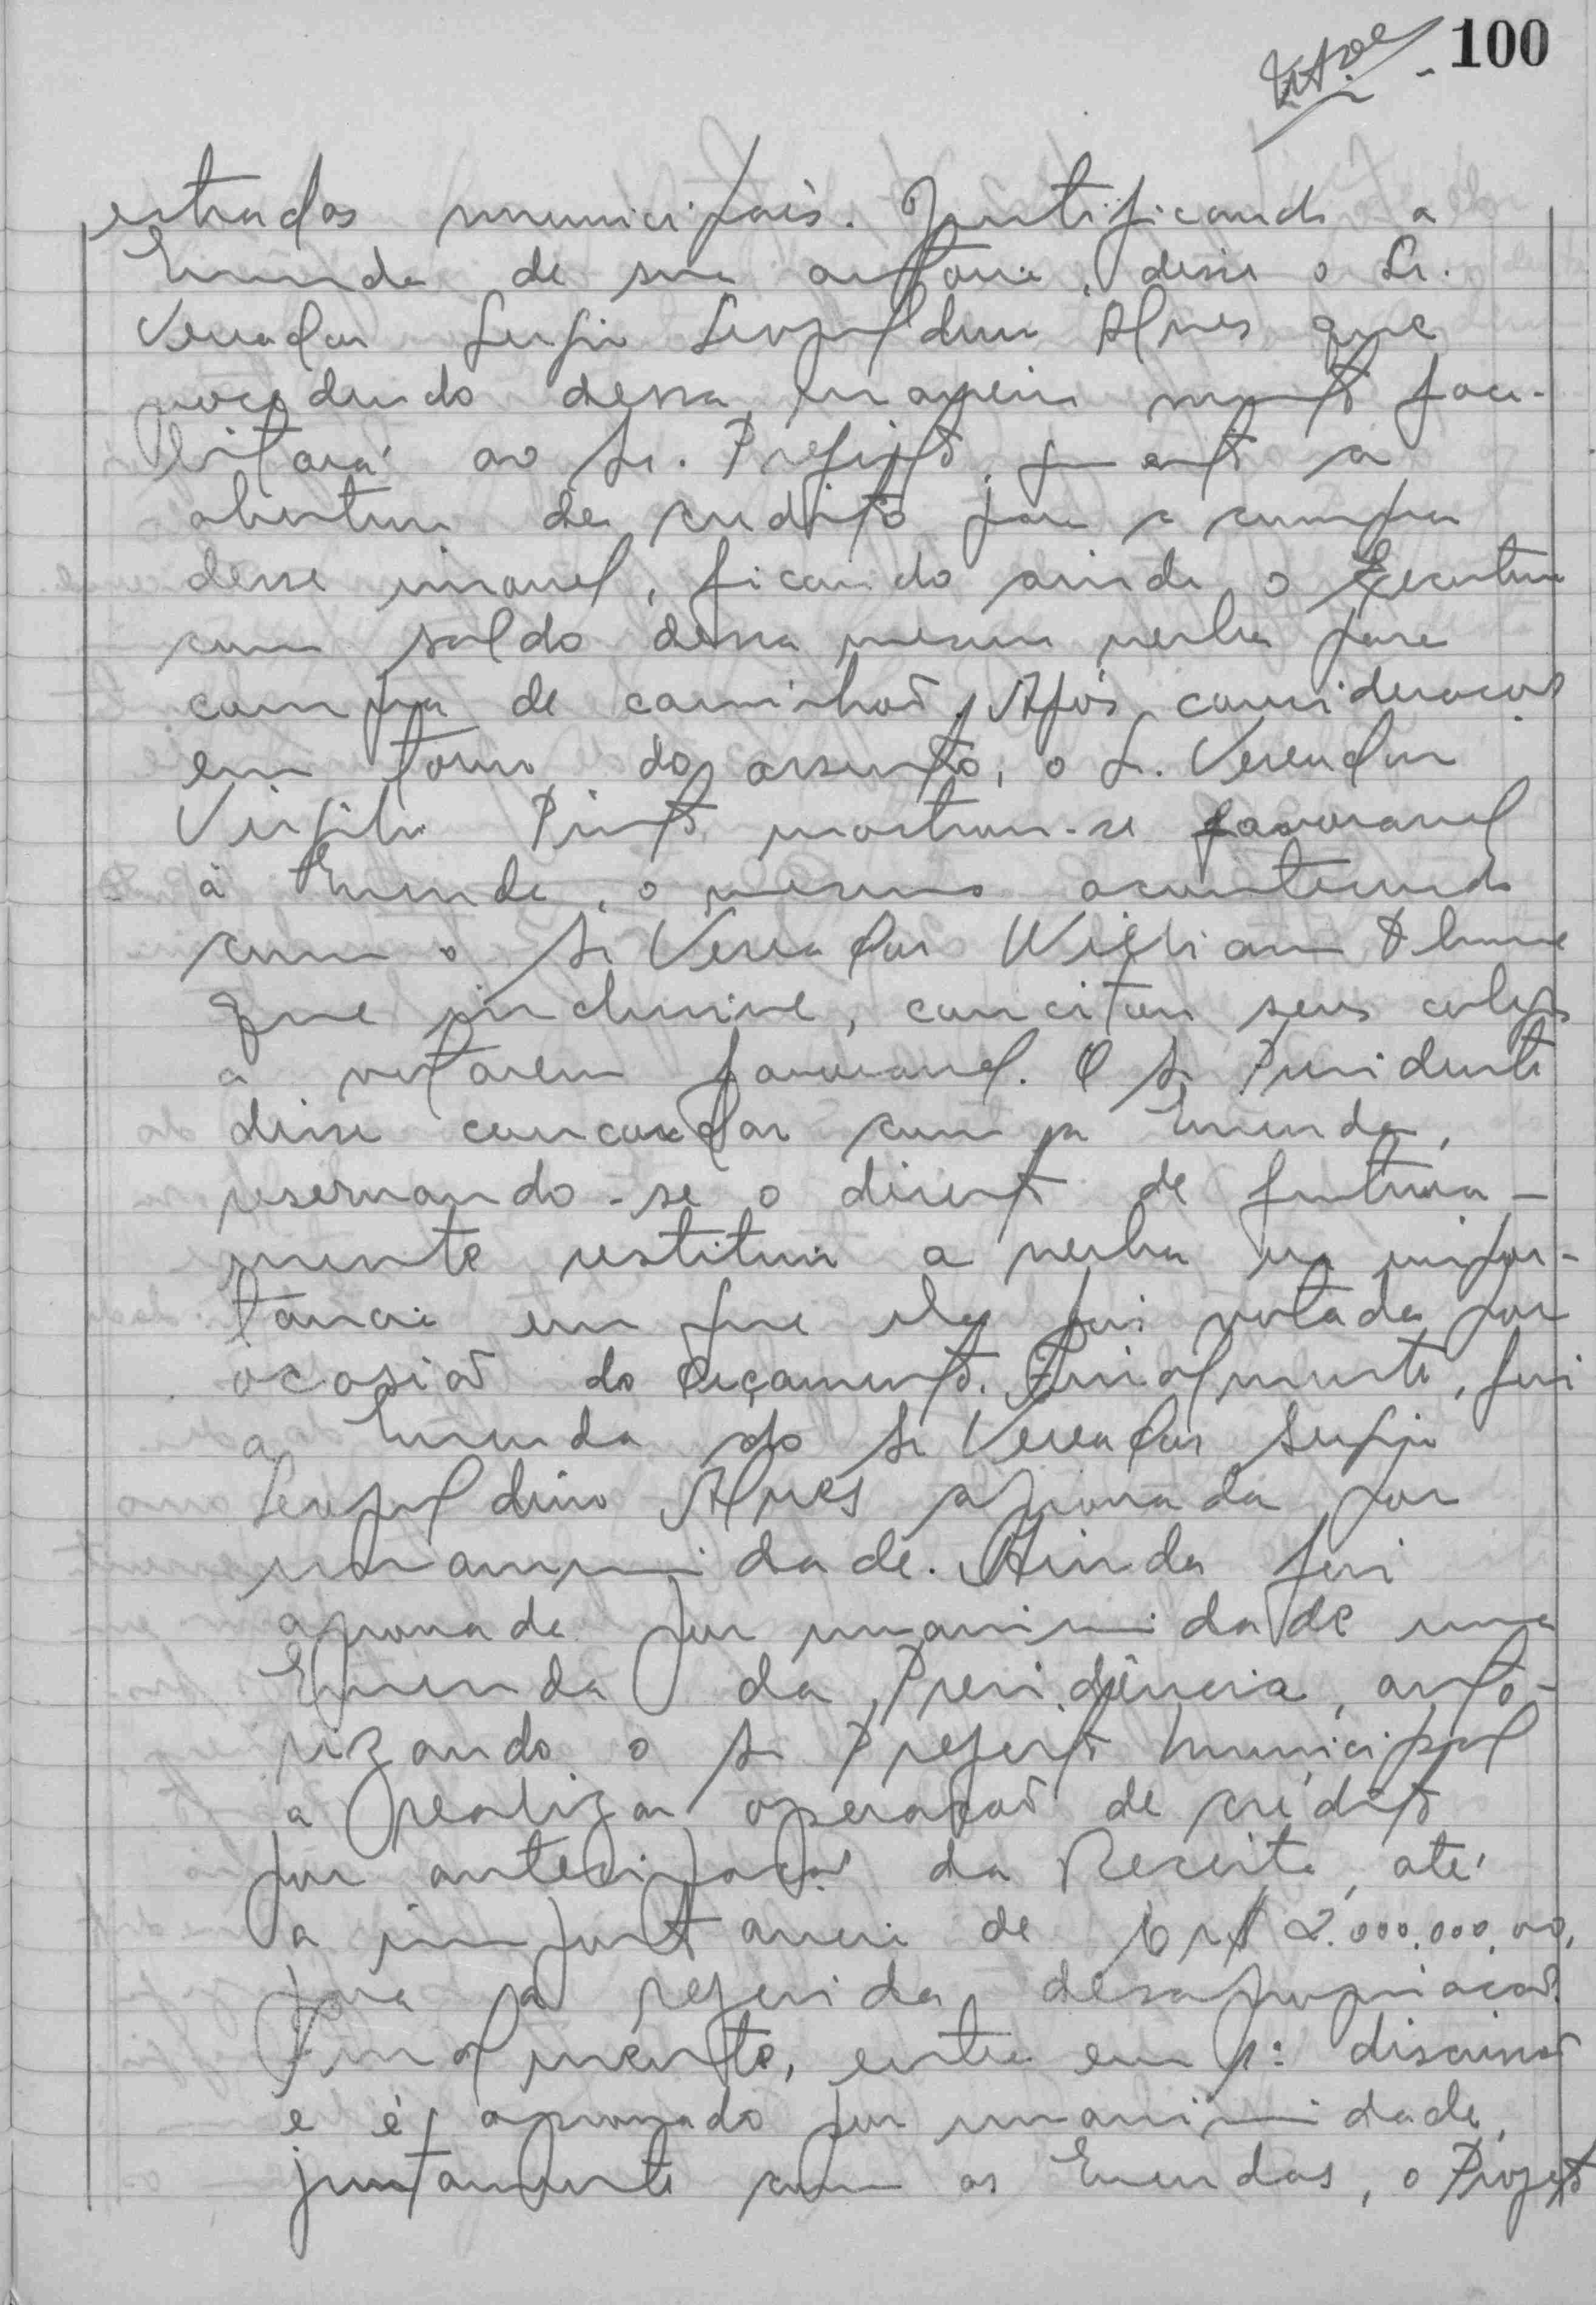 100
estradas municipais. Justificando a
Emenda de sua autoria, disse o Sr.
Vereador Sergio Leopoldino Alves que
procedendo dessa maneira muito faci-
litará ao Sr. Prefeito, quanto a
abertura de credito para a compra
desse imovel, ficando ainda o Executivo
com saldo dessa mesma verba para
compra de caminhão. Após considerações
em torno do assunto, o Sr. Vereador
Virgilio Pinto mostrou-se favoravel
à Emenda, o mesmo acontecendo
com o Sr Vereador William
que inclusive, concitou seus colegas
a votarem favoravel. O Sr Presidente
disse concordar com a Emenda,
reservando-se o direito de futura-
mente restituir a verba na impor-
tancia em que ela foi votada por
ocasião do Orçamento. Finalmente, foi
a Emenda do Sr Vereador Sergio
Leopoldino Alves aprovada por
unanimidade. Ainda foi
aprovada por unanimidade uma
Emenda da Presidência, auto-
rizando o Sr Prefeito Municipal
a realizar operação de crédito
por antecipação da Receita, até
a importancia de Cr$ 2.000.000,00,
para a referida desapropriação.
Finalmente, entra em 1ª discussão
e é aprovado por unanimidade,
juntamente com as Emendas, o Projeto